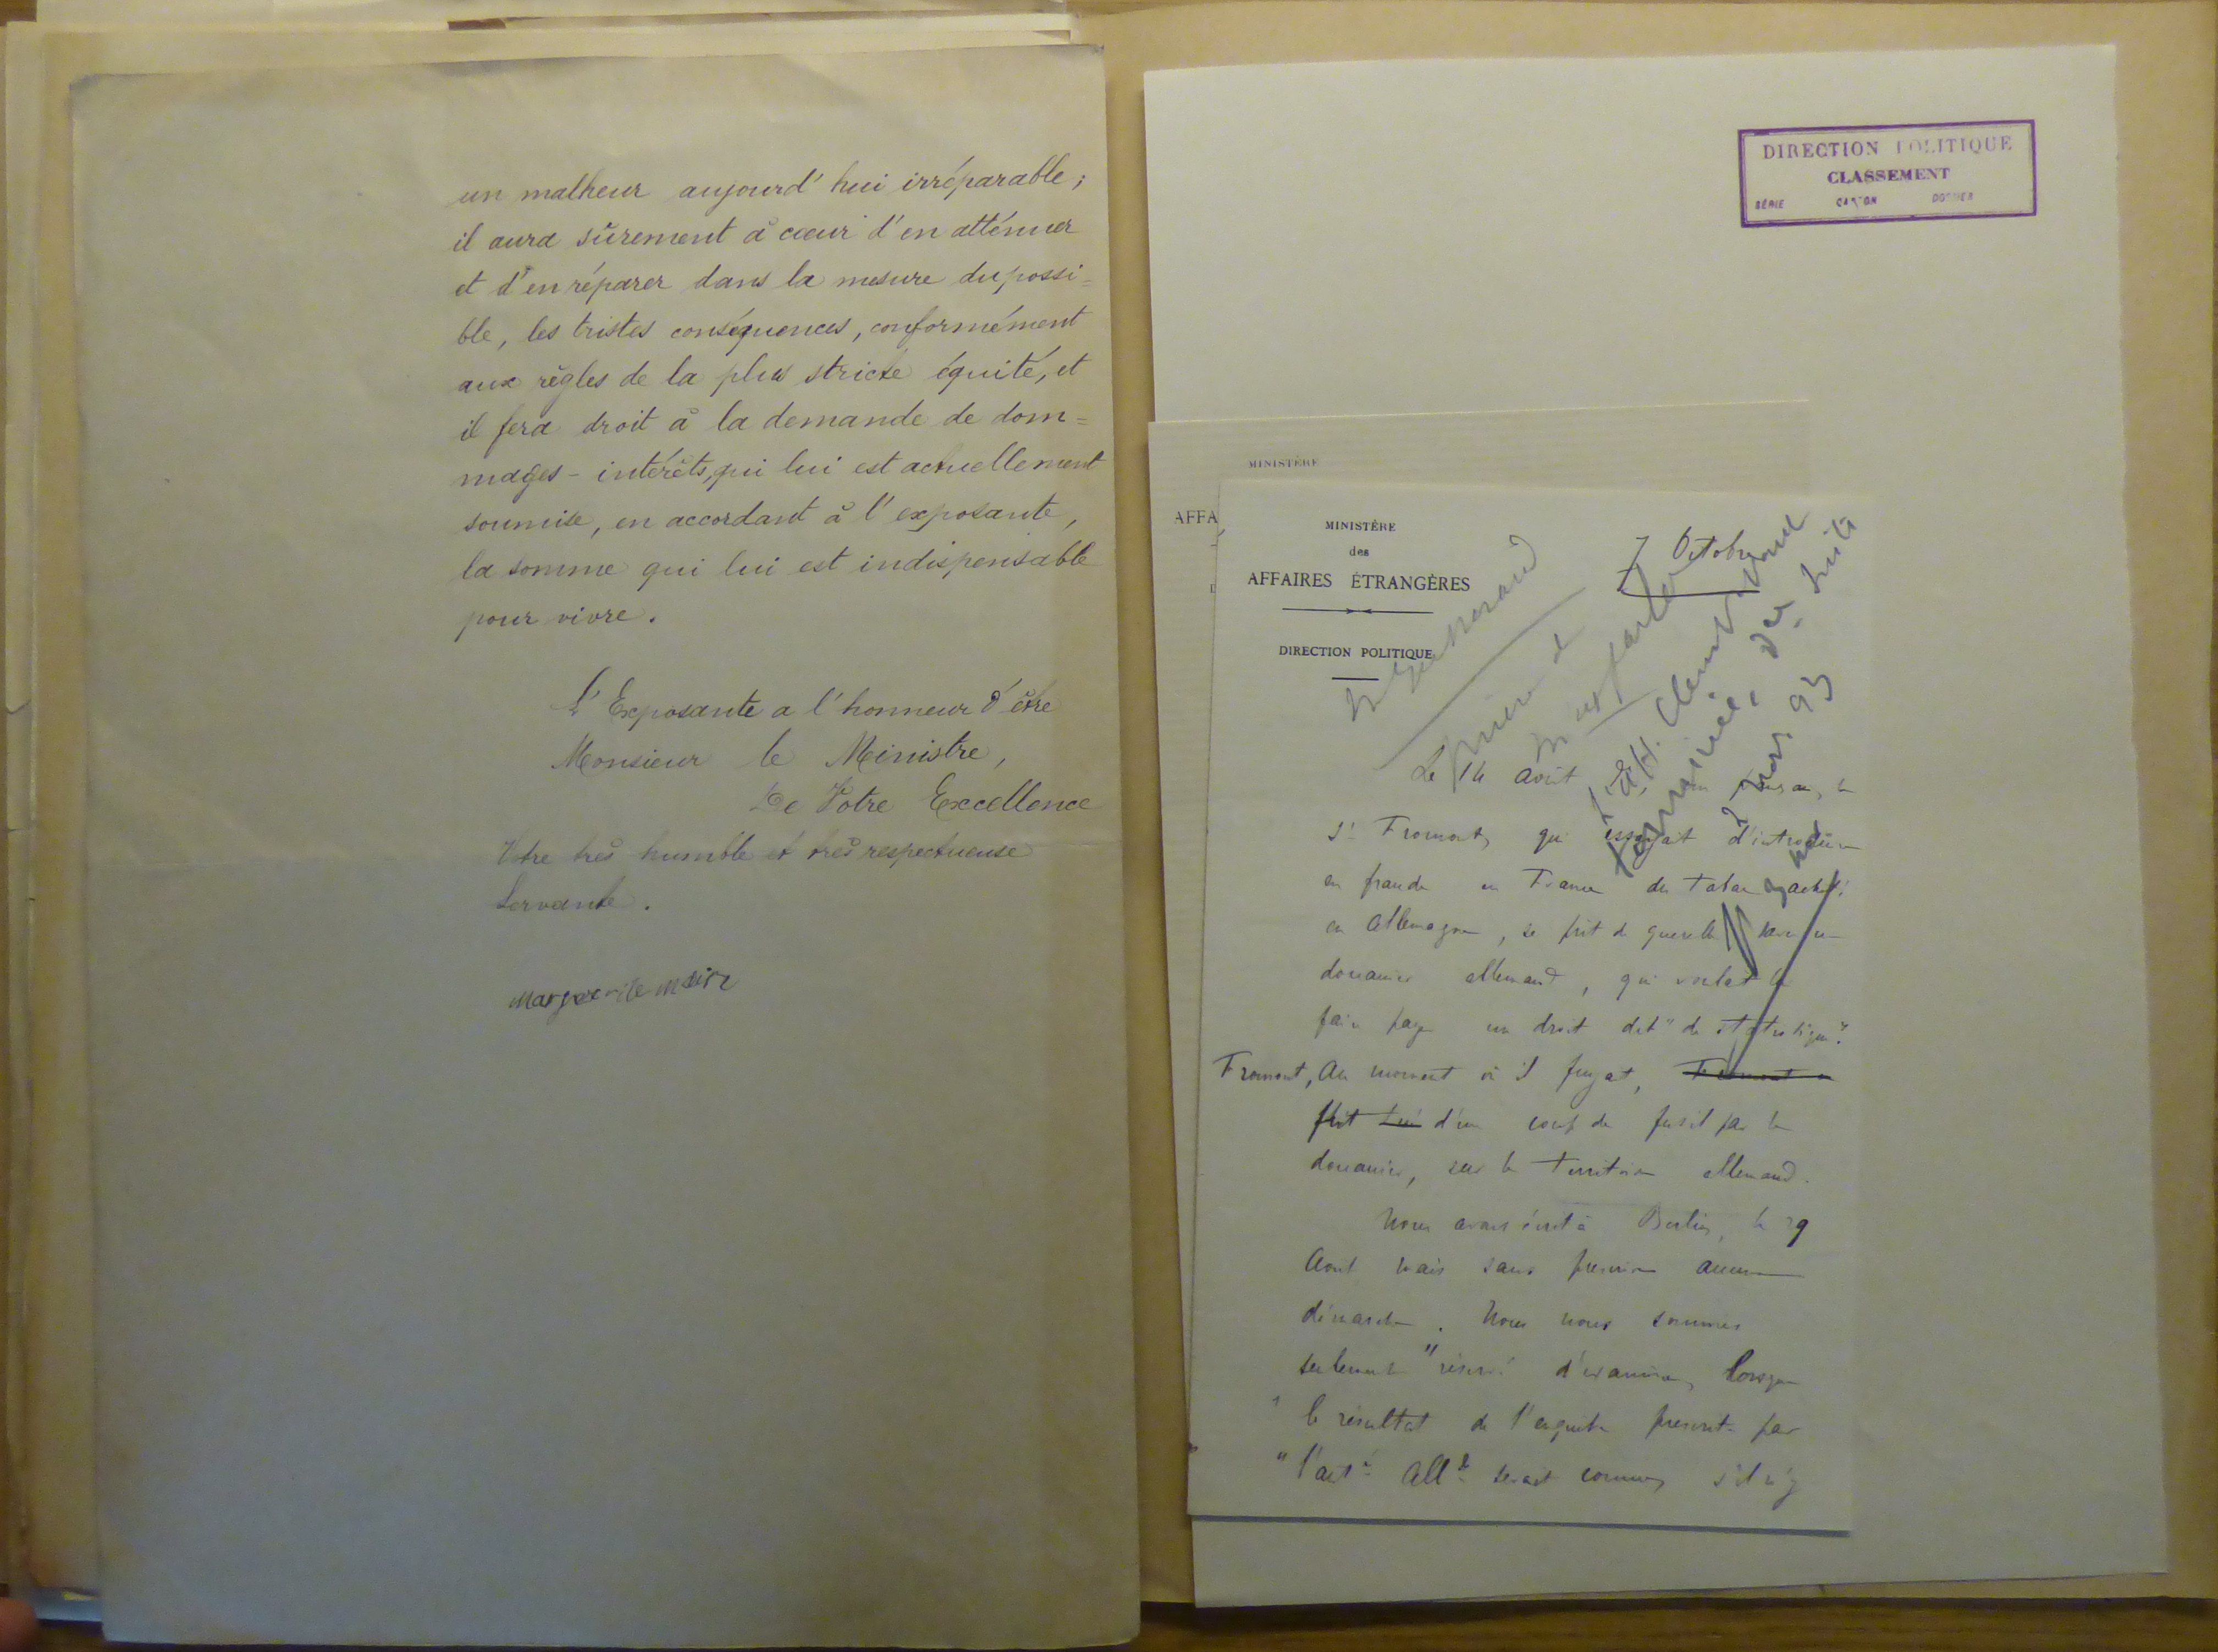 un malheur aujourd'hui irréparable ;
il aura sûrement à cœur d'en atténuer
et d'en réparer dans la mesure du possi=
ble, les tristes conséquences, conformément
aux règles de la plus stricte équité, et
il fera droit à la demande de dom=
mages-intérêts, qui lui est actuellement
soumise, en accordant à l'exposante,
la somme qui lui est indispensable
pour vivre.
L'Exposante a l'honneur d'être
Monsieur le Ministre,
De Votre Excellence
Votre très humble et très respectueuse
Servante.
Marguerite Maire
DIRECTION POLITIQUE
CLASSEMENT
SÉRIE CARTON DOSSIER
MINISTÈRE
AFFA
MINISTÈRE
des
AFFAIRES ÉTRANGÈRES
DIRECTION POLITIQUE
7 Octobre
Le 14 août, le
Sr Fromont, qui essayait d'introduire
en fraude en France du tabac acheté
en Allemagne, se prit de querelle avec un
douanier allemand, qui voulait le
faire payer un droit dit "de statistique".
Fromont, Au moment où il fuyait, Fromont
fut tué d'un coup de fusil par le
douanier, sur le territoire allemand.
Nous avons écrit à Berlin, le 29
Août mais sans prescrire aucune
démarche. Nous nous sommes
seulement "réservé d'examiner, lorsque
" le résultat de l'enquête prescrite par
" l'auté Allde serait connu, s'il n'y